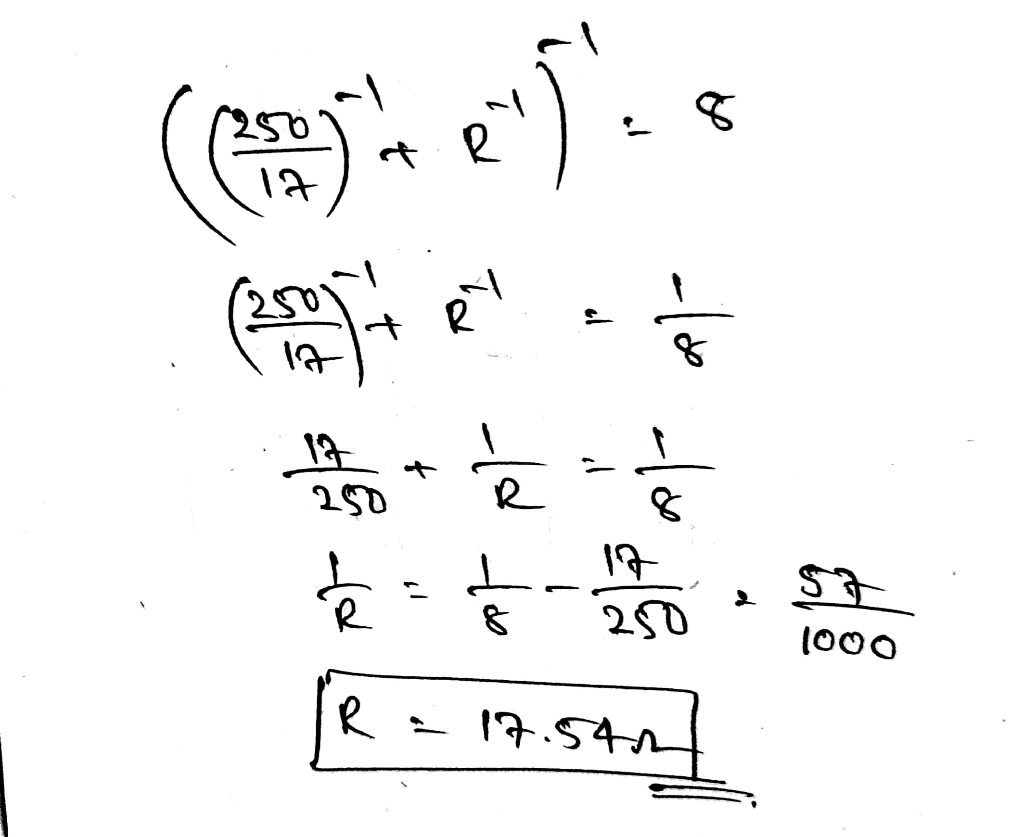 ((250/17)⁻¹ + R⁻¹)⁻¹ = 8
(250/17)⁻¹ + R⁻¹ = 1/8
17/250 + 1/R = 1/8
1/R = 1/8 - 17/250 = 57/1000
R = 17.54Ω